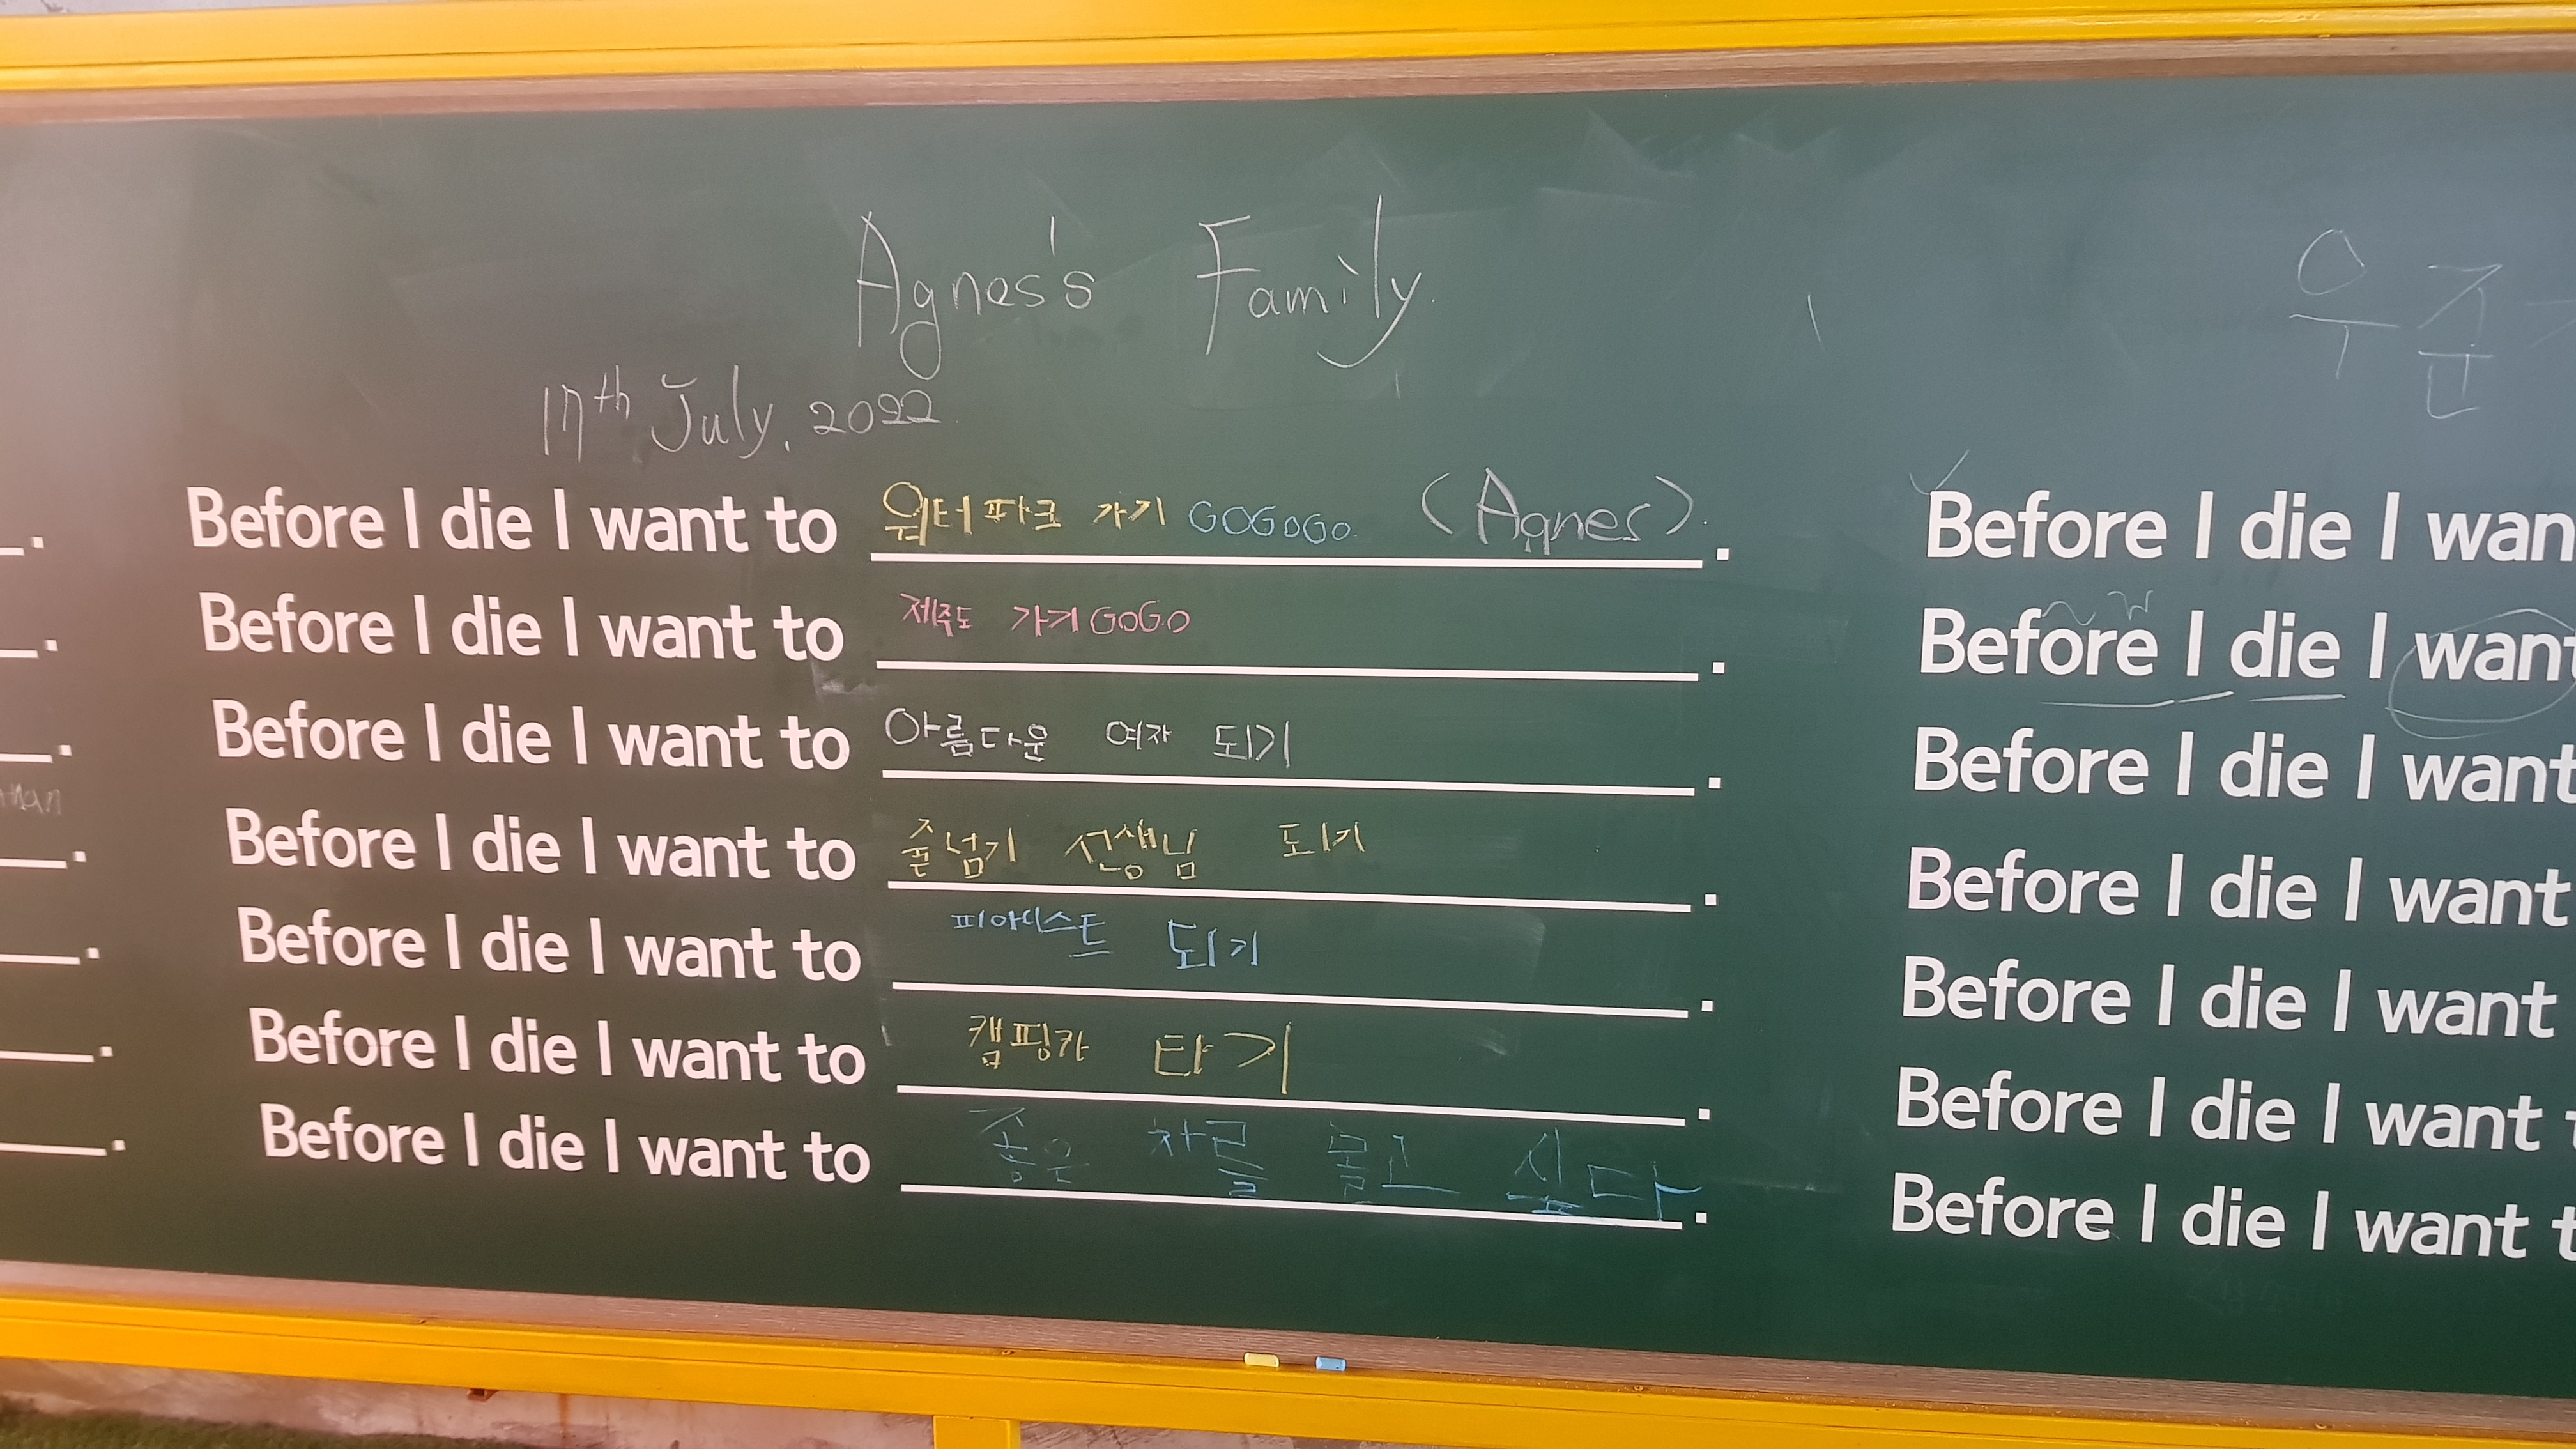 Agnes's Family
우준
17th July, 2022
Before I die I want to 워터파크 가기 GOGOGO (Agnes).
Before I die I want to 제주도 가기 GOGO.
Before I die I want to 아름다운 여자 되기.
Before I die I want to 줄넘기 선생님 되기.
Before I die I want to 피아니스트 되기.
Before I die I want to 캠핑카 타기.
Before I die I want to 좋은 차를 몰고 싶다.
Before I die I wan
Before I die I want
Before I die I want
Before I die I want
Before I die I want
Before I die I want t
Before I die I want t